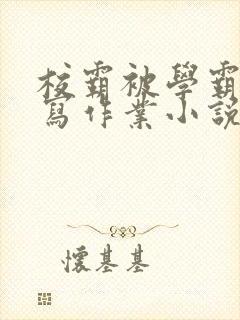 校霸被學霸
寫作業小説
懷基基